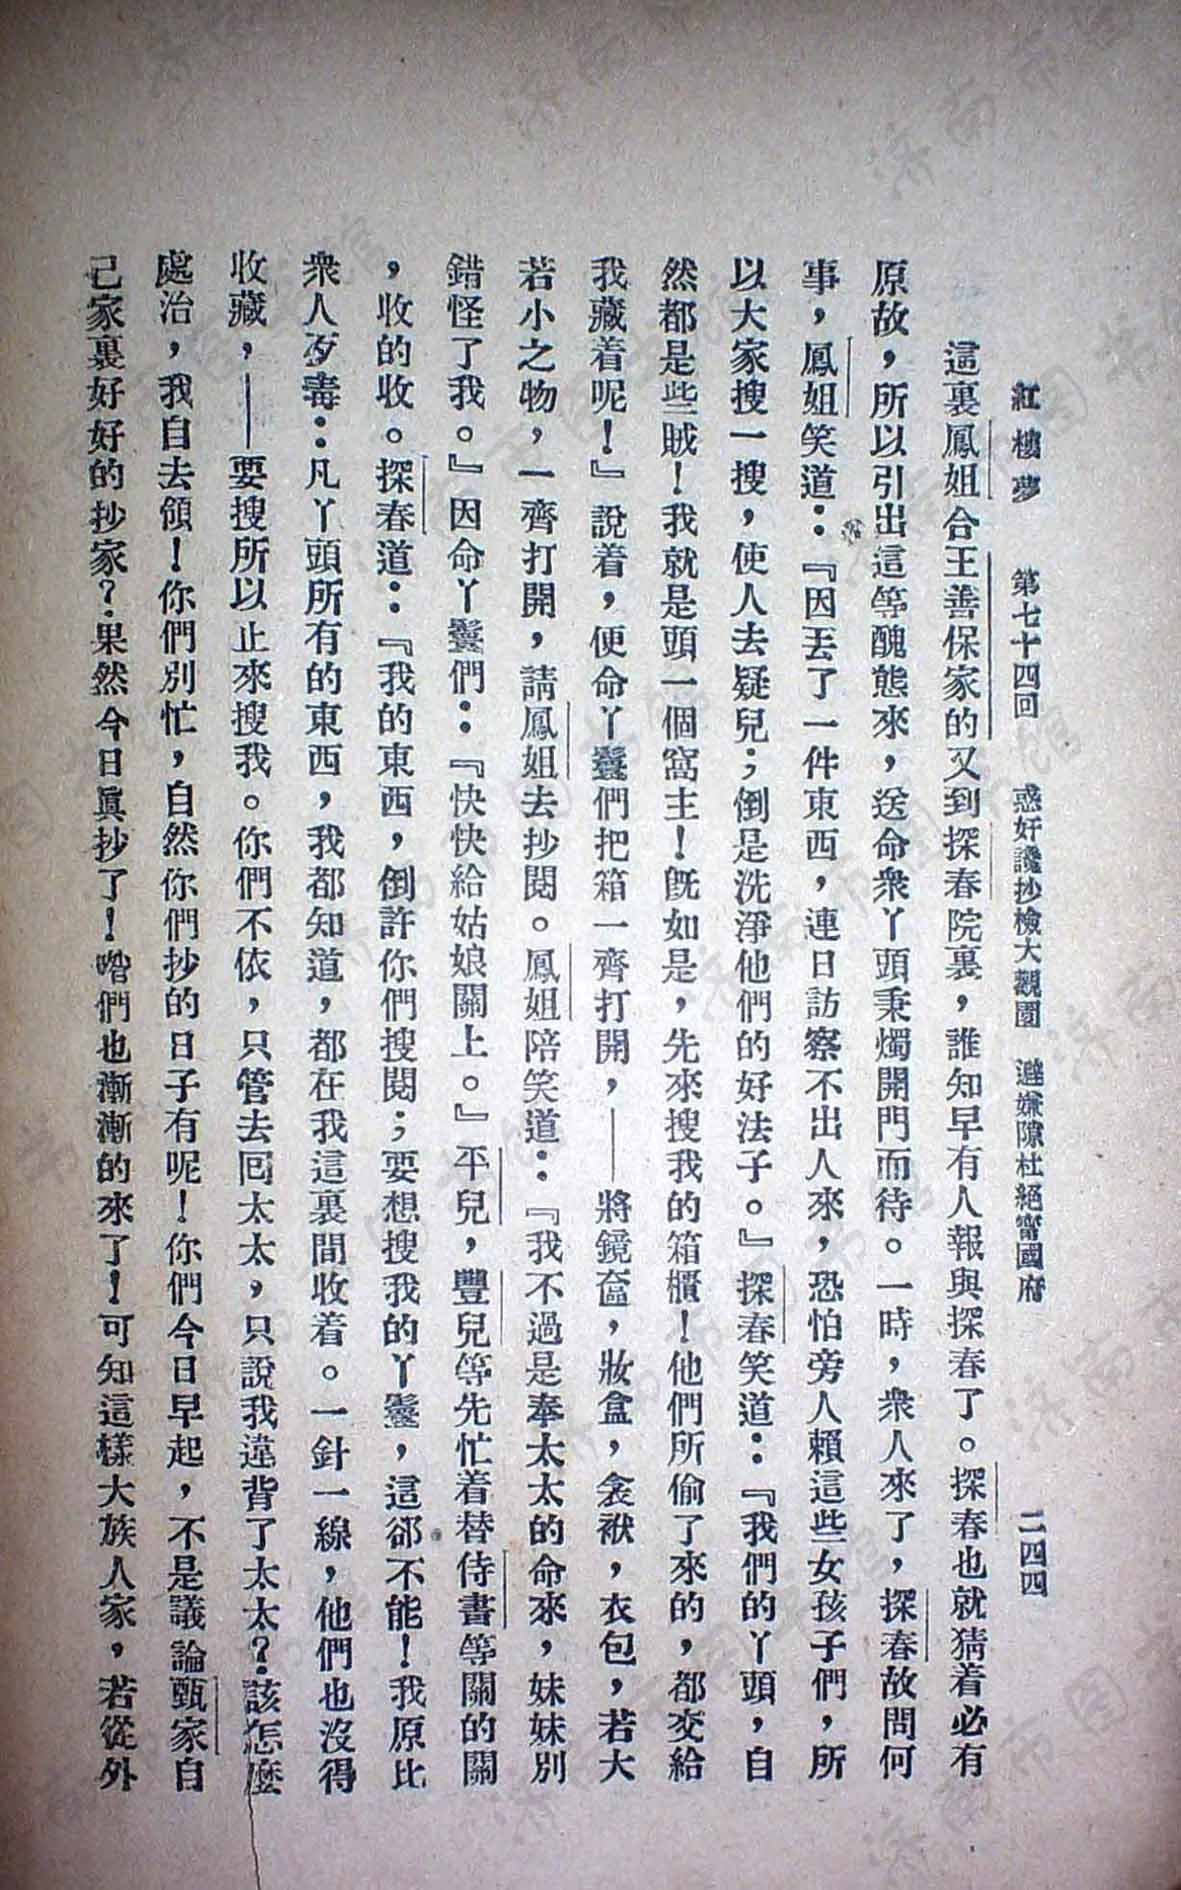 紅樓夢　第七十四回　惑奸讒抄檢大觀園　避嫌隙杜絕甯國府　二四四
這裏鳳姐合王善保家的又到探春院裏，誰知早有人報與探春了。探春也就猜着必有
原故，所以引出這等醜態來，送命衆丫頭秉燭開門而待。一時，衆人來了，探春故問何
事，鳳姐笑道：『因丟了一件東西，連日訪察不出人來，恐怕旁人賴這些女孩子們，所
以大家搜一搜，使人去疑兒；倒是洗淨他們的好法子。』探春笑道：『我們的丫頭，自
然都是些賊！我就是頭一個窩主！旣如是，先來搜我的箱櫃！他們所偷了來的，都交給
我藏着呢！』說着，便命丫鬟們把箱一齊打開，——將鏡奩，妝盒，衾袱，衣包，若大
若小之物，一齊打開，請鳳姐去抄閱。鳳姐陪笑道：『我不過是奉太太的命來，妹妹別
錯怪了我。』因命丫鬟們：『快快給姑娘關上。』平兒，豐兒等先忙着替侍書等關的關
，收的收。探春道：『我的東西，倒許你們搜閱；要想搜我的丫鬟，這卻不能！我原比
衆人歹毒：凡丫頭所有的東西，我都知道，都在我這裏間收着。一針一線，他們也沒得
收藏，——要搜所以止來搜我。你們不依，只管去囘太太，只說我違背了太太？該怎麼
處治，我自去領！你們別忙，自然你們抄的日子有呢！你們今日早起，不是議論甄家自
己家裏好好的抄家？果然今日眞抄了！喒們也漸漸的來了！可知這樣大族人家，若從外
济南市图书馆